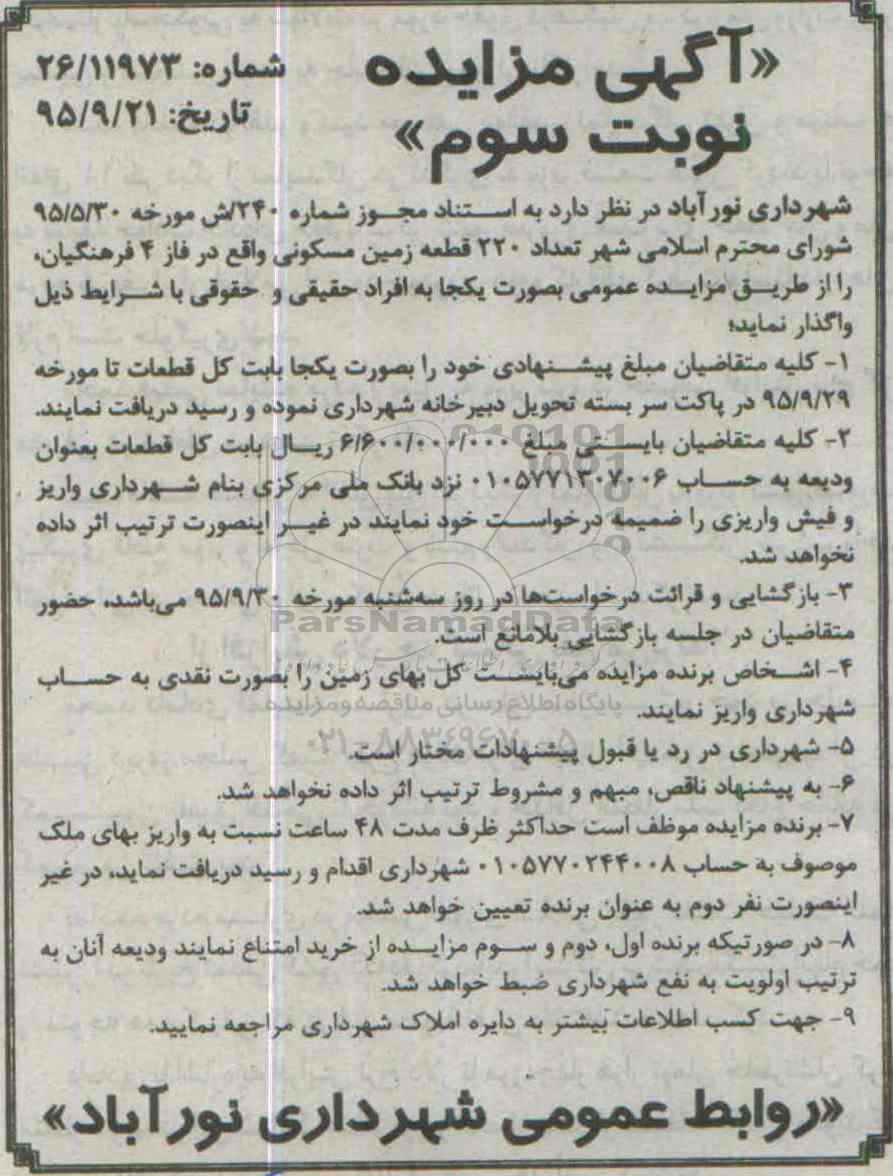 «آگهی مزایده
نوبت سوم»
شماره: ۲۶/۱۱۹۷۳
تاریخ: ۹۵/۹/۲۱
شهرداری نورآباد در نظر دارد به استناد مجوز شماره ۲۴۰/ش مورخه ۹۵/۵/۳۰
شورای محترم اسلامی شهر تعداد ۲۲۰ قطعه زمین مسکونی واقع در فاز ۴ فرهنگیان،
را از طریق مزایده عمومی بصورت یکجا به افراد حقیقی و حقوقی با شرایط ذیل
واگذار نماید؛
۱- کلیه متقاضیان مبلغ پیشنهادی خود را بصورت یکجا بابت کل قطعات تا مورخه
۹۵/۹/۲۹ در پاکت سر بسته تحویل دبیرخانه شهرداری نموده و رسید دریافت نمایند.
۲- کلیه متقاضیان بایستی مبلغ ۶/۶۰۰/۰۰۰/۰۰۰ ریال بابت کل قطعات بعنوان
ودیعه به حساب ۰۱۰۵۷۷۱۳۰۷۰۰۶ نزد بانک ملی مرکزی بنام شهرداری واریز
و فیش واریزی را ضمیمه درخواست خود نمایند در غیر اینصورت ترتیب اثر داده
نخواهد شد.
۳- بازگشایی و قرائت درخواست‌ها در روز سه‌شنبه مورخه ۹۵/۹/۳۰ می‌باشد، حضور
متقاضیان در جلسه بازگشایی بلامانع است.
۴- اشخاص برنده مزایده می‌بایست کل بهای زمین را بصورت نقدی به حساب
شهرداری واریز نمایند.
۵- شهرداری در رد یا قبول پیشنهادات مختار است.
۶- به پیشنهاد ناقص، مبهم و مشروط ترتیب اثر داده نخواهد شد.
۷- برنده مزایده موظف است حداکثر ظرف مدت ۴۸ ساعت نسبت به واریز بهای ملک
موصوف به حساب ۰۱۰۵۷۷۰۲۴۴۰۰۸ شهرداری اقدام و رسید دریافت نماید، در غیر
اینصورت نفر دوم به عنوان برنده تعیین خواهد شد.
۸- در صورتیکه برنده اول، دوم و سوم مزایده از خرید امتناع نمایند ودیعه آنان به
ترتیب اولویت به نفع شهرداری ضبط خواهد شد.
۹- جهت کسب اطلاعات بیشتر به دایره املاک شهرداری مراجعه نمایید.
«روابط عمومی شهرداری نورآباد»
ParsNamadData
پایگاه اطلاع رسانی مناقصه و مزایده
۰۲۱-۸۸۳۴۹۶۷۰-۵